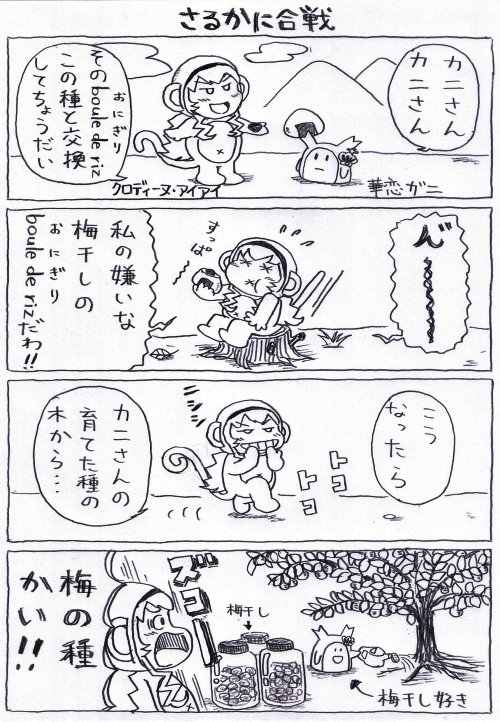 さるかに合戦
カニさん
カニさん
おにぎり
そのboule de riz
この種と交換
してちょうだい
クロディーヌ・アイアイ
華恋ガニ
すっぱ〜
私の嫌いな
梅干しの
おにぎり
boule de rizだわ!!
こう
なったら
ニシシシ
トコ
トコ
カニさんの
育てた種の
木から…
梅干し
ズコー
梅の種
かい!!
梅干し好き